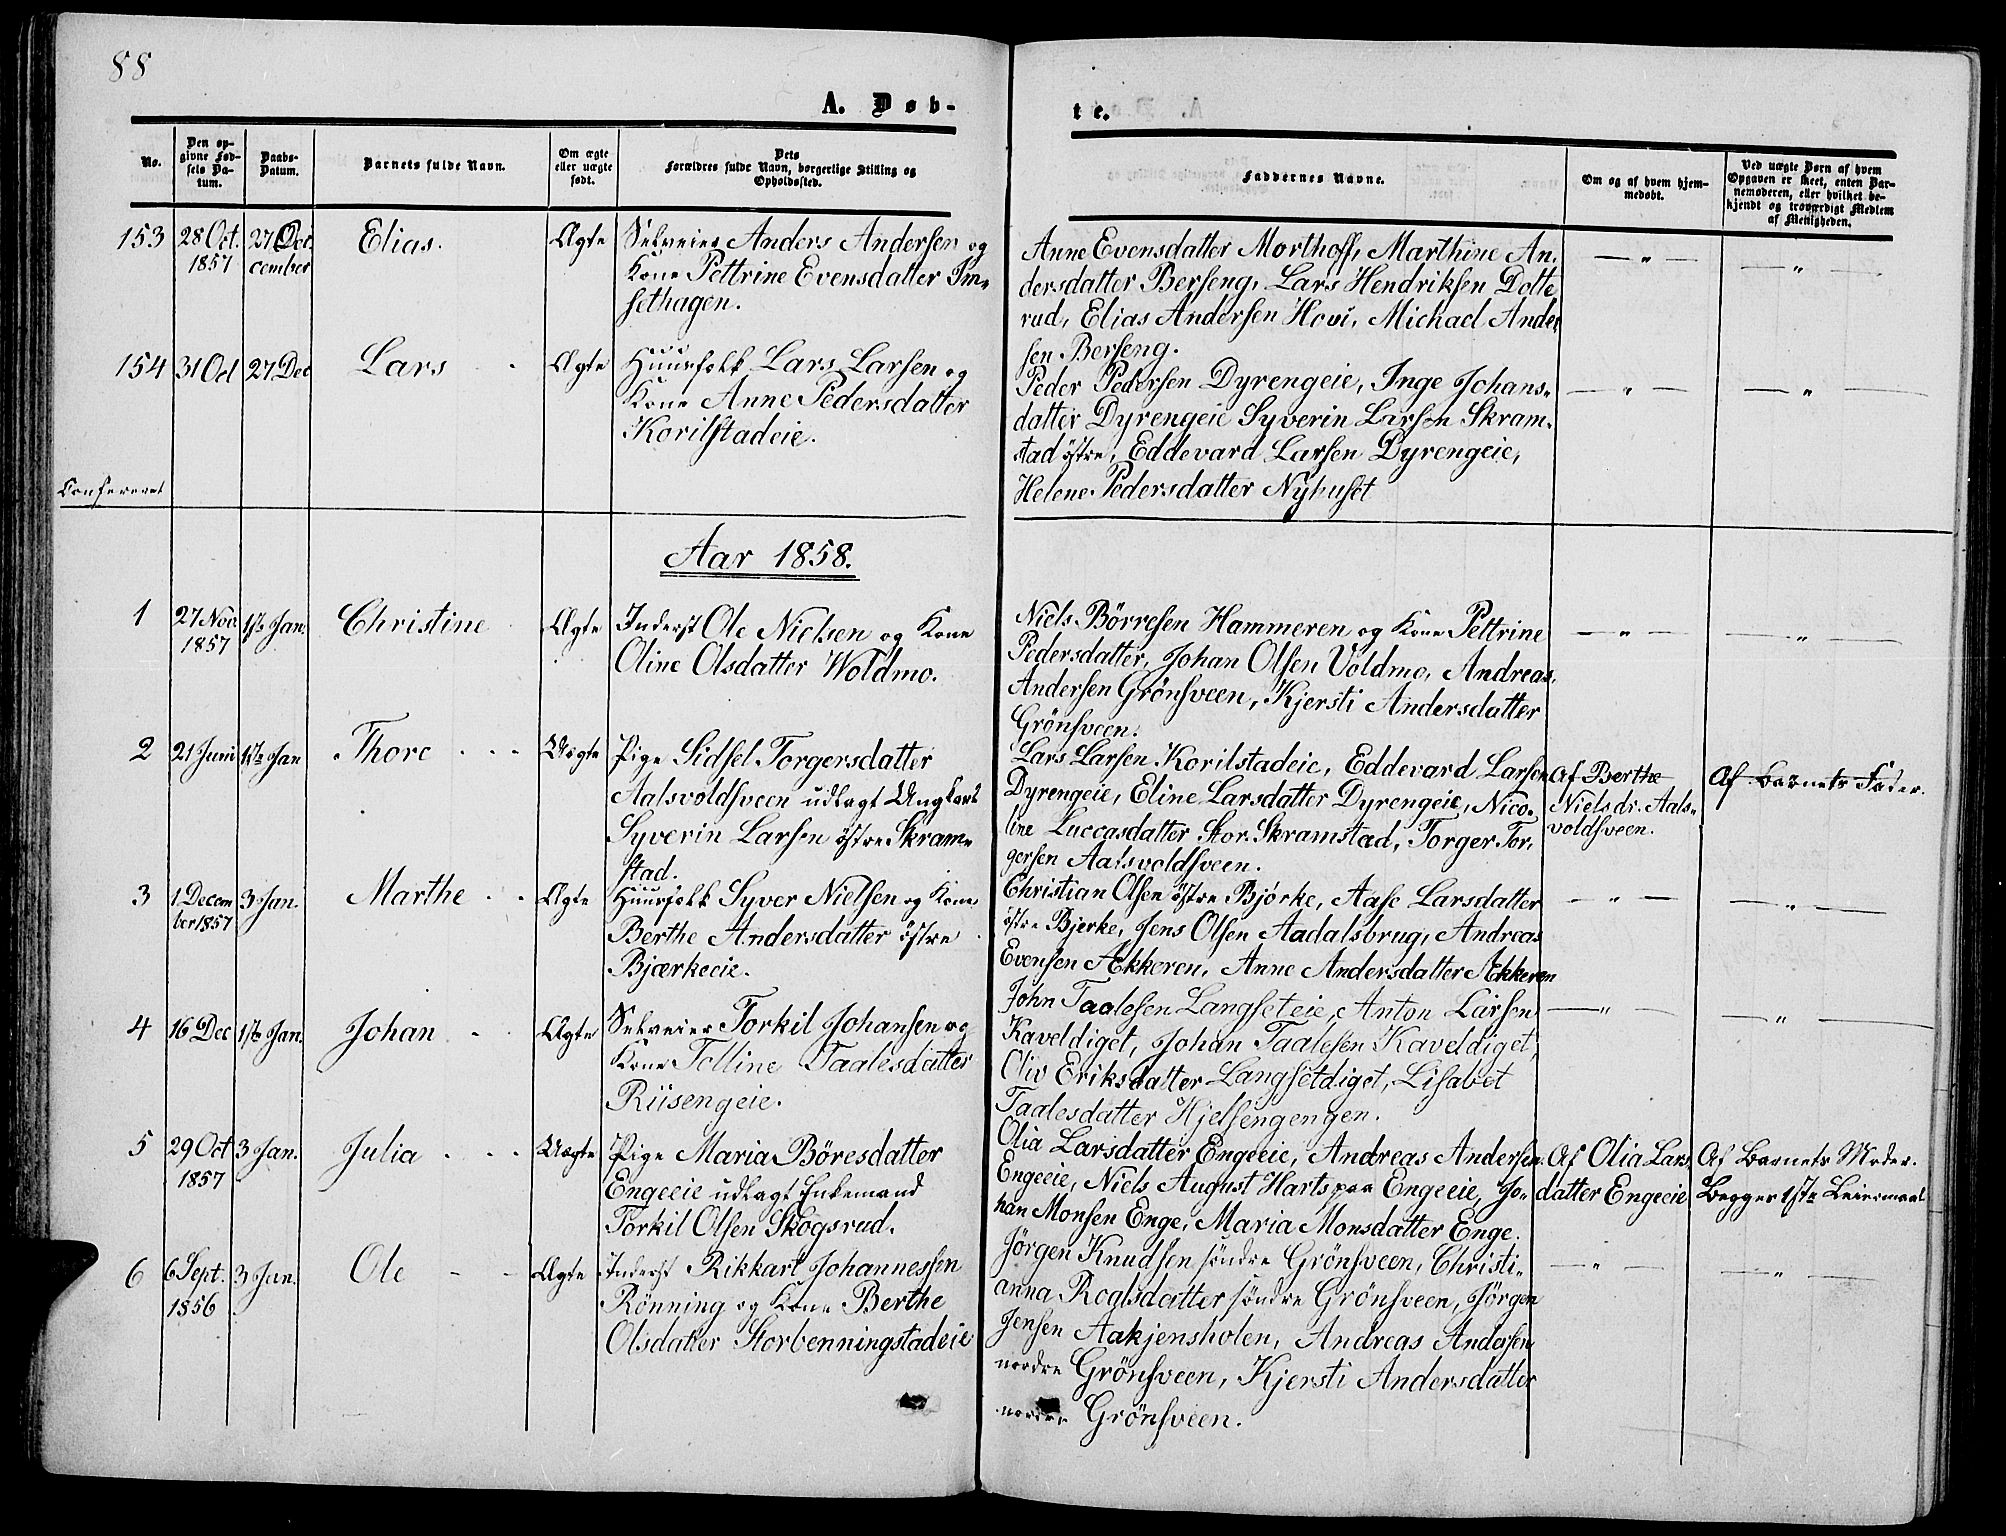 88
A. Døb-
te.
No.
Den op-
givne Fød-
sels Da-
tum.
Daabs-
Datum.
Barnets fulde Navn.
Om ægte
eller uægte
født.
Dets
Forældres fulde Navn, borgerlige Stilling og
Opholdssted.
Faddernes Navne.
Om og af hvem hjem-
medøbt.
Ved uægte Børn af hvem
Opgaven er skeet, enten Bar-
nemoderen, eller hvilket be-
kjendt og troværdigt Medlem
af Menigheden.
153 28 Oct. 1857
27 December
Elias.
Ægte
Selveier Anders Andersen og
Kone Pettrine Evensdatter Im-
sethagen.
Anne Evensdatter Morthoff, Marthine An-
dersdatter Berseng, Lars Hendriksen Dotte
rud, Elias Andersen Hovi, Michael Ander
sen Berseng.
— " —
— " —
154 31 Oct 27 Dec
Lars
Ægte
Huusfolk Lars Larsen og
Kone Anne Pedersdatter
Korilstadeie.
Peder Pedersen Dyrengeie, Inge Johans-
datter Dyrengeie Syverin Larsen Skram-
stad östre, Eddevard Larsen Dyrengeie,
Helene Pedersdatter Nyhuset
— " —
— " —
Confereret
Aar 1858.
1 27 Nov. 1857
1ste Jan.
Christine
Ægte
Inderst Ole Nielsen og Kone
Oline Olsdatter Woldmo.
Niels Börresen Hammeren og Kone Pettrine
Pedersdatter, Johan Olsen Voldmo, Andreas
Andersen Grönsveen, Kjersti Andersdatter
Grönsveen.
— " —
— " —
2 21 Juni 1ste Jan
Thore
Uægte
Pige Sidsel Torgersdatter
Aalsvoldsveen udlagt Ungkarl
Syverin Larsen östre Skram-
stad.
Lars Larsen Korilstadeie, Eddevard Larsen
Dyrengeie, Eline Larsdatter Dyrengeie, Nico-
line Luccasdatter Stor Skramstad, Torger Tor-
gersen Aalsvoldsveen.
Af Berthe
Nielsdr. Aals-
voldsveen.
Af Barnets Fader.
3 1 December 1857
3 Jan.
Marthe
Ægte
Huusfolk Syver Nielsen og Kone
Berthe Andersdatter östre
Bjærkeeie.
Christian Olsen östre Bjørke, Aase Larsdatter
östre Bjerke, Jens Olsen Aadalsbrug, Andreas
Evensen Ækkeren, Anne Andersdatter Ækkeren
— " —
— " —
4 16 Dec 1ste Jan.
Johan
Ægte
Selveier Torkil Johansen og
Kone Tolline Taalesdatter
Riisengeie.
John Taalesen Langseteie, Anton Larsen
Kaveldiget, Johan Taalesen Kaveldiget,
Oliv Eriksdatter Langsetdiget, Lisabet
Taalesdatter Hjelsengengen.
— " —
— " —
5 29 Oct 1857
3 Jan.
Julia
Uægte
Pige Maria Böresdatter
Engeeie udlagt Enkemand
Torkil Olsen Skogsrud.
Olia Larsdatter Engeeie, Andreas Andersen
Engeeie, Niels August Harts paa Engeeie, Jo-
han Monsen Enge, Maria Monsdatter Enge.
Af Olia Lars
datter Engeeie
Af Barnets Moder.
Begges 1ste Leiermaal
6 6 Sept. 1856
3 Jan.
Ole
Ægte
Inderst Rikkart Johannessen
Rönning og Kone Berthe
Olsdatter Storbenningstadeie
Jörgen Knudsen söndre Grönsveen, Christi-
anna Roalsdatter söndre Grönsveen, Jörgen
Jensen Aakjensholen, Andreas Andersen
nordre Grönsveen, Kjersti Andersdatter
nordre Grönsveen.
— " —
— " —